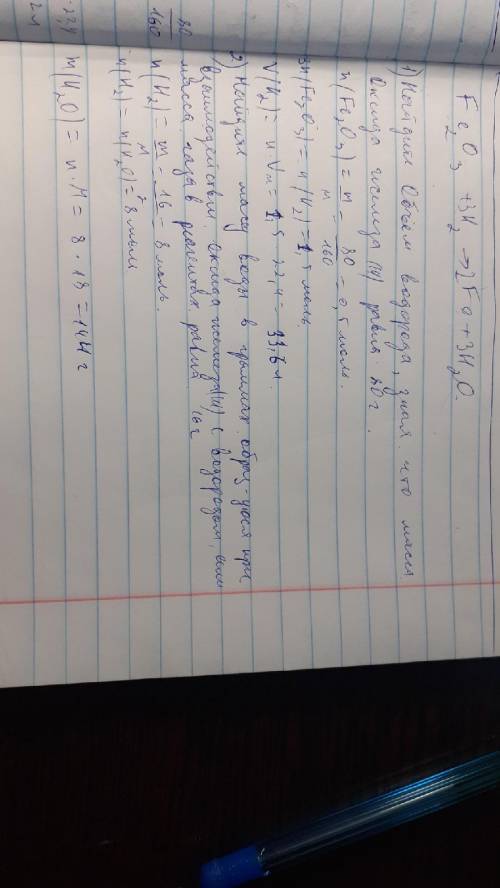 Fe2O3 + 3H2 → 2Fe + 3H2O.
1) Найдите объём водорода, зная что масса
оксида железа (III) равна 80 г.
n(Fe2O3) = m/M = 80/160 = 0,5 моль.
3n(Fe2O3) = n(H2) = 1,5 моль
V(H2) = n · Vm = 1,5 · 22,4 = 33,6 л.
2) Найдите массу воды в граммах образ-уюся при
взаимодействии оксида железа (III) с водородом, если
масса газа в реагентах равна 16 г
n(H2) = m/M = 16/2 = 8 моль.
n(H2) = n(H2O) = 8 моль
m(H2O) = n · M = 8 · 18 = 144 г
80
160